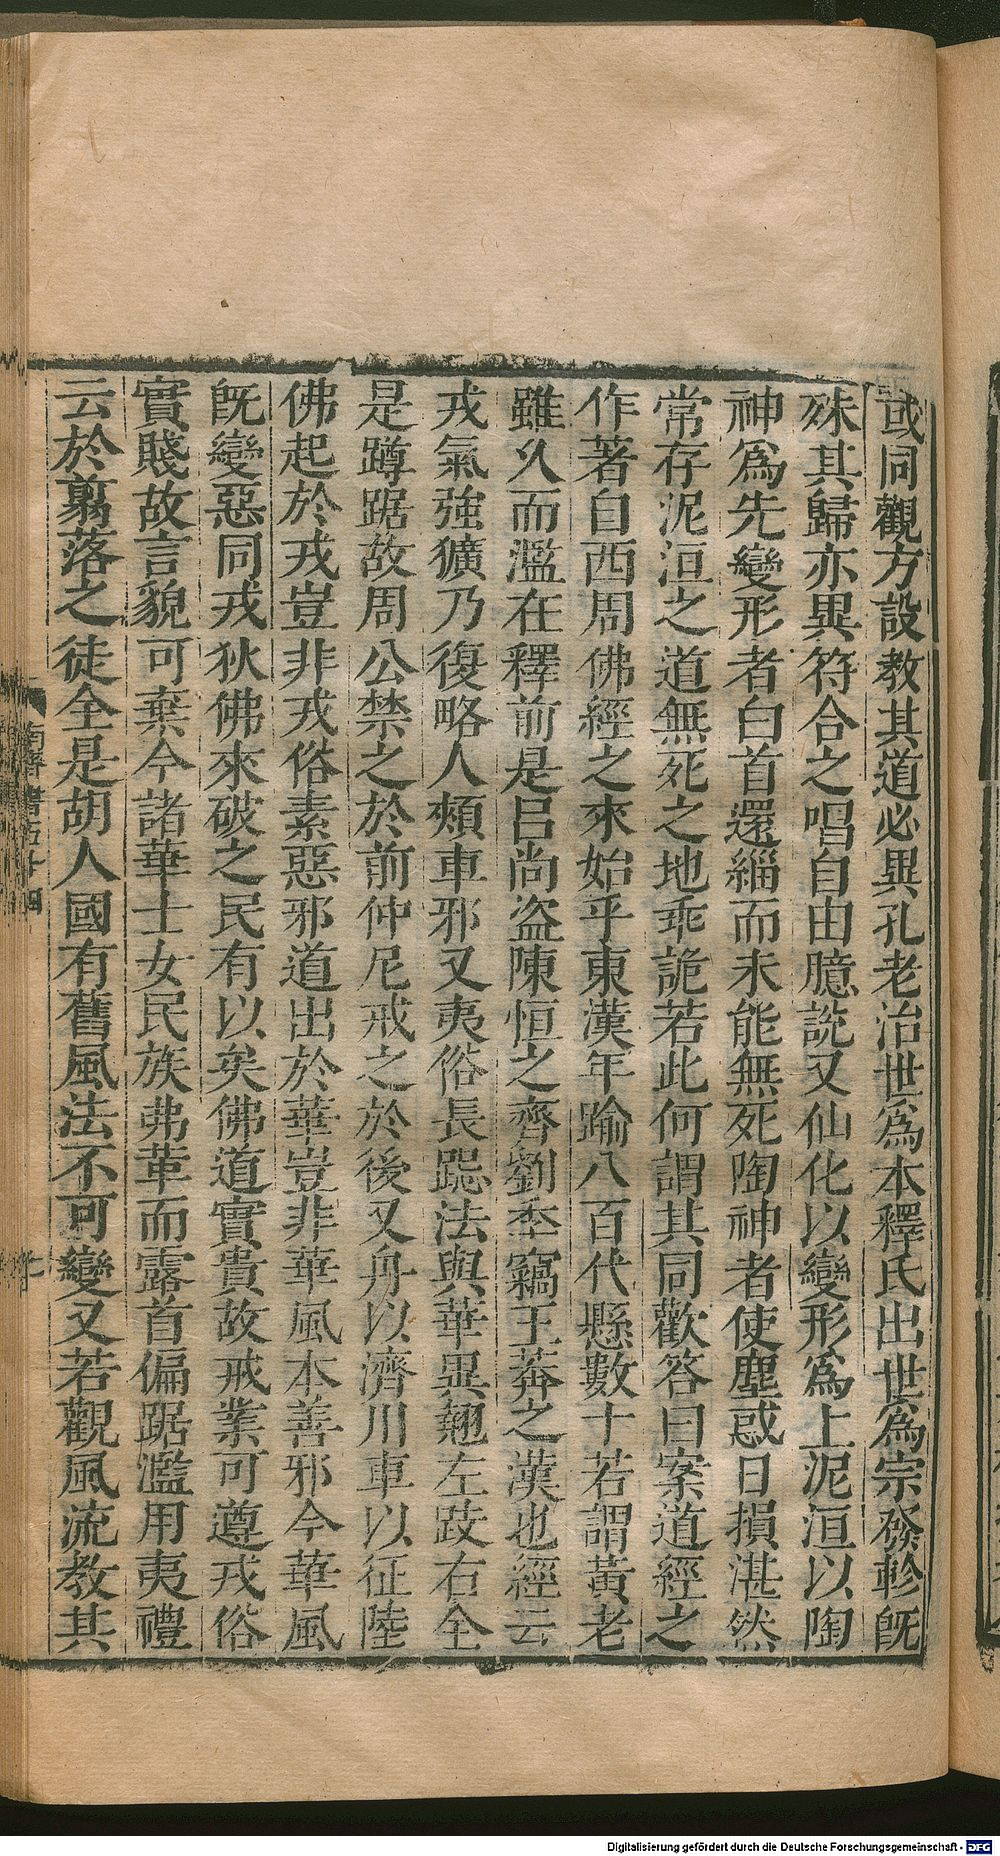 或同觀方設教其道必異孔老治世爲本釋氏出世爲宗發軫旣
殊其歸亦異符合之唱自由臆說又仙化以變形爲上泥洹以陶
神爲先變形者白首還緇而未能無死陶神者使塵惑日損湛然
常存泥洹之道無死之地乖詭若此何謂其同歡答曰案道經之
作著自西周佛經之來始乎東漢年踰八百代懸數十若謂黃老
雖久而濫在釋前是呂尚盜陳恒之齊劉季竊王莽之漢也經云
戎氣強獷乃復略人頰車邪又夷俗長跽法與華異翹左跂右全
是蹲踞故周公禁之於前仲尼戒之於後又舟以濟川車以征陸
佛起於戎豈非戎俗素惡邪道出於華豈非華風本善邪今華風
旣變惡同戎狄佛來破之民有以矣佛道實貴故戒業可遵戎俗
實賤故言貌可棄今諸華士女民族弗革而露首偏踞濫用夷禮
云於翦落之徒全是胡人國有舊風法不可變又若觀風流教其
南齊書
Digitalisierung gefördert durch die Deutsche Forschungsgemeinschaft - DFG